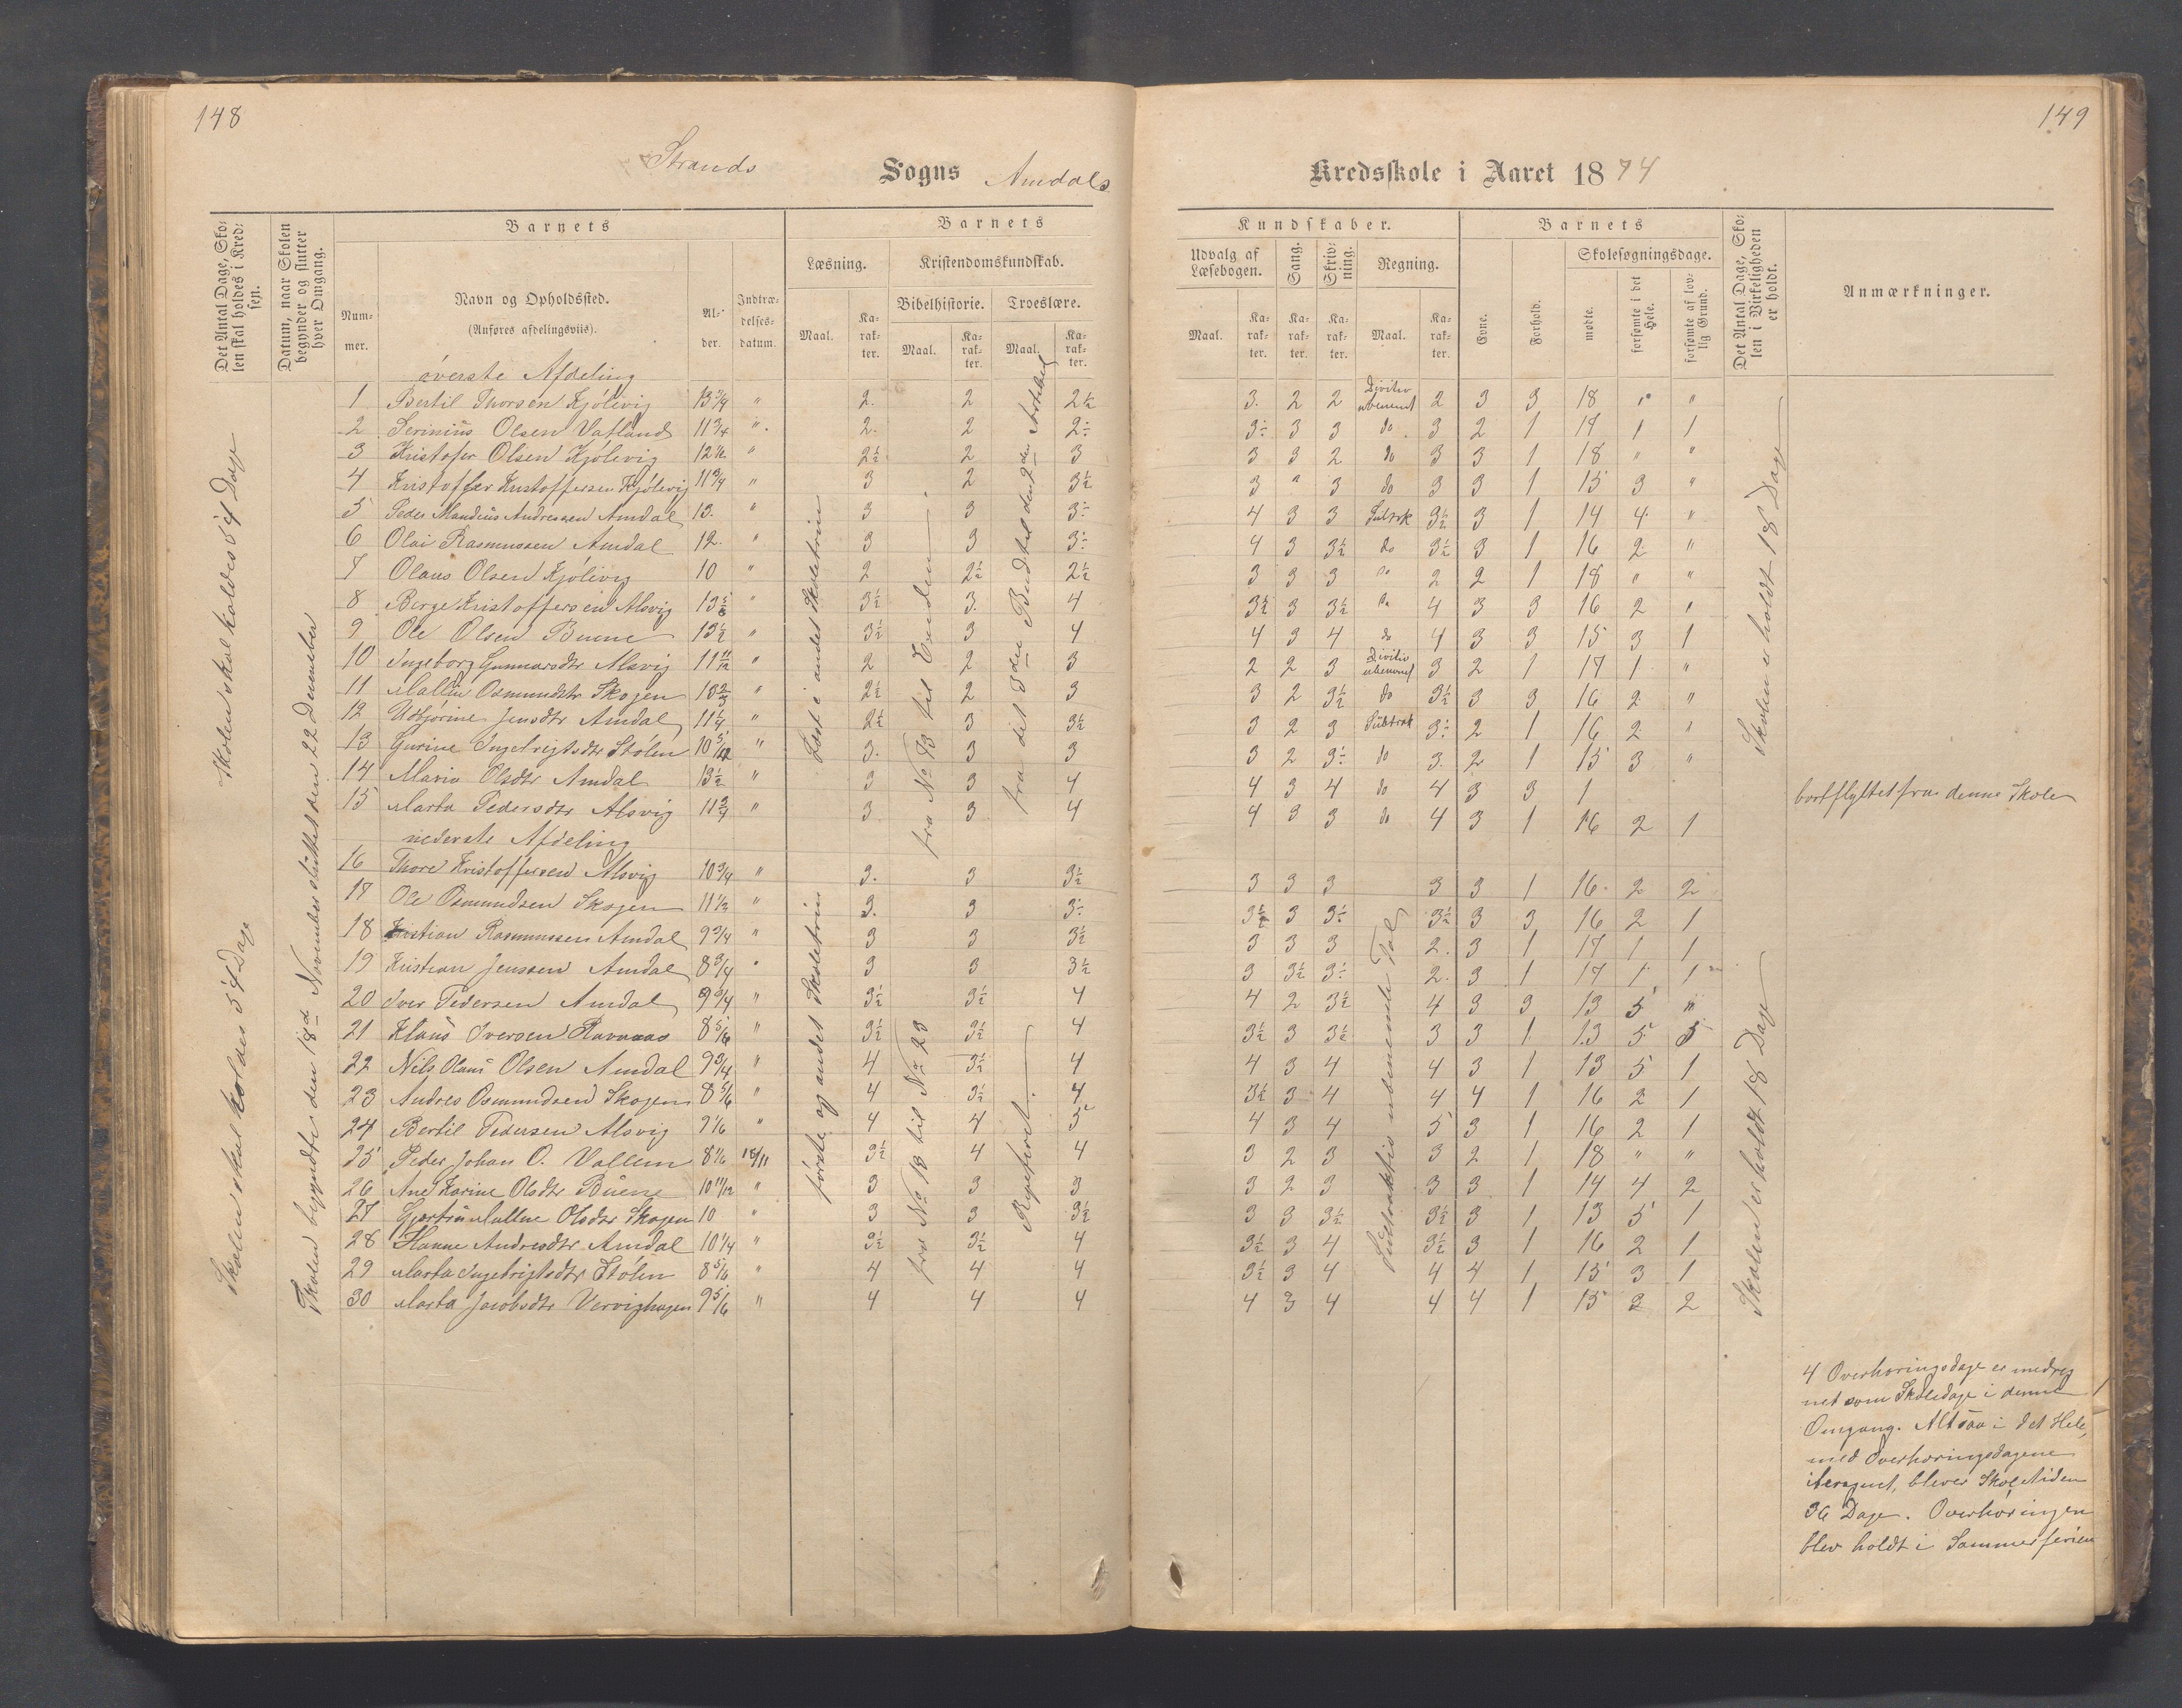 148
Strands Sogns Amdals
Det Antal Dage, Skolen skal holdes i Kredsen.
Datum, naar Skolen begynder og slutter hver Omgang.
Barnets
Barnets
Nummer.
Navn og Opholdssted.
(Anføres afdelingsviis).
Alder.
Indtrædelsesdatum.
Læsning.
Kristendomskundskab.
Bibelhistorie.
Troeslære.
Maal.
Karakter.
Maal.
Karakter.
Maal.
Karakter.
Skolen skal holdes 54 Dage
Skolen skal holdes 54 Dage
Skolen begyndte den 18d November sluttet den 22 December
Læst i andet Skoletrin
fra No 73 til Enden
fra det 3die Bud til den 2den Artikel
første og andet Skoletrin
fra No 18 til No 23
Repeteret
øverste Afdeling
1 Bertil Thorsen Kjølevig 13 3/4 " 2. 2 2½
2 Serinius Olsen Vatland 11 3/4 " 2. 2 2÷
3 Kristofer Olsen Kjølevig 12½ " 2½ 2 3
4 Kristoffer Kristoffersen Kjølevig 11 3/4 " 3 2 3½
5 Peder Mandius Andreasen Amdal 13. " 3 3 3÷
6 Olai Rasmussen Amdal 12. " 3 3 3÷
7 Olaus Olsen Kjølevig 10 " 2 2½ 2½
8 Borge Kristoffersen Alsvig 13 5/6 " 3½ 3. 4
9 Ole Olsen Buene 13½ " 3½ 3 4
10 Ingeborg Gunnarsdtr Alsvig 11 11/12 " 2 2 3
11 Mallin Osmundsdtr Skogen 13 2/3 " 2½ 2 3
12 Udbjørine Jensdtr Amdal 11 1/4 " 2½ 3 3½
13 Gurine Ingebrigtsdtr Stølen 10 5/12 " 3. 3 3
14 Maria Olsdtr Amdal 13½ " 3 3 4
15 Marta Pedersdtr Alsvig 11 3/4 " 3 3 4
nederste Afdeling
16 Thore Kristoffersen Alsvig 10 3/4 " 3. 3 3½
17 Ole Osmundsen Skogen 11 1/3 " 3. 3 3÷
18 Kristian Rasmussen Amdal 9 3/4 " 3 3 3½
19 Kristian Jenssen Amdal 8 3/4 " 3 3 3½
20 Iver Pedersen Amdal 9 3/4 " 3½ 3½ 4
21 Klaus Iversen Ravnaas 8 5/6 " 3½ 3½ 4
22 Nils Olaus Olsen Amdal 9 3/4 " 4 3½ 4
23 Andreas Osmundsen Skogen 8 5/6 " 4 3½ 4
24 Bertil Pedersen Alsvig 9 1/6 " 4 4 5
25 Peder Johan O. Vallem 8 1/6 18/11 3½ 4 4
26 Ane Karine Olsdtr Buene 10 11/12 " 3 3 3
27 Gjertrü Malene Olsdtr Skogen 10 " 3 3 3½
28 Hanne Andreasdtr Amdal 10 1/4 " 3½ 3½ 4
29 Marta Ingebrigtsdtr Stølen 8 5/6 " 4 4 4
30 Marta Jacobsdtr Vervighagen 9 5/6 " 4 4 4
149
Kredsskole i Aaret 1874
Kundskaber.
Barnets
Udvalg af Læsebogen.
Sang.
Skrivning.
Regning.
Evne.
Forhold.
Skolesøgningsdage.
Maal.
Karakter.
Karakter.
Karakter.
Maal.
Karakter.
mødte.
forsømte i det Hele.
forsømte af lovlig Grund.
Det Antal Dage, Skolen i Virkeligheden er holdt.
Anmærkninger.
3. 2 2 Divitiv ubenevnt 2 3 3 18 " "
3÷ 3 3 do 3 2 1 17 1 1
3 3 2 do 3 3 1 18 " "
3 " 3 do 3 3 1 15 3 "
4 3 3 Subtrk 3½ 3 1 14 4 "
4 3 3½ do 3½ 3 1 16 2 "
3 3 3 do 2 2 1 18 " "
3½ 3 3½ do 4 3 3 16 2 "
4 3 4 do 4 3 3 15 3 1
2 2 3 Divitiv ubenevnt 3 2 1 17 1 "
3 2 3½ do 3½ 3 3 16 2 "
3 2 3 Subtrak 3÷ 2 1 16 2 "
3 2 3÷ do 3. 2 1 15 3 "
4 3 4 do 4 3 3 1 bortflyttet fra denne Skole
4 3 3 do 4 3 1 16 2 1
3 3 3 3 3 1 16 2 2
3½ 3 3÷ 3½ 3 3 16 2 1
3 3 3 2. 3 1 17 1 1
3 3½ 3÷ 2. 3 1 17 1 1
4 2 3½ 4 3 3 13 5 "
3½ 3 3½ 3 3 1 13 5 5
4 3 4 4 3 1 13 5 1
3½ 3 4 4 4 1 16 2 1
4 3 4 5 3 1 16 2 1
3 2 3 3 2 1 18 " "
3 2 3 3 3 1 14 4 2
3 3 3½ 3½ 3 1 13 5 1
3½ 3 4 3½ 3 1 16 2 1
3½ 3 4 4 4 1 15 3 1
4 3 4 4 4 1 15 3 2
Subtraktiv ubenevnte Tal
Skolen er holdt 18 Dage
Skolen er holdt 18 Dage
4 Overhøringsdage er medreg
net som Skoledage i denne
Omgang. Altsaa i det Hele,
med Overhøringsdagene
iberegnet, bliver Skoletiden
36 Dage. Overhøringen
blev holdt i Sommerferien